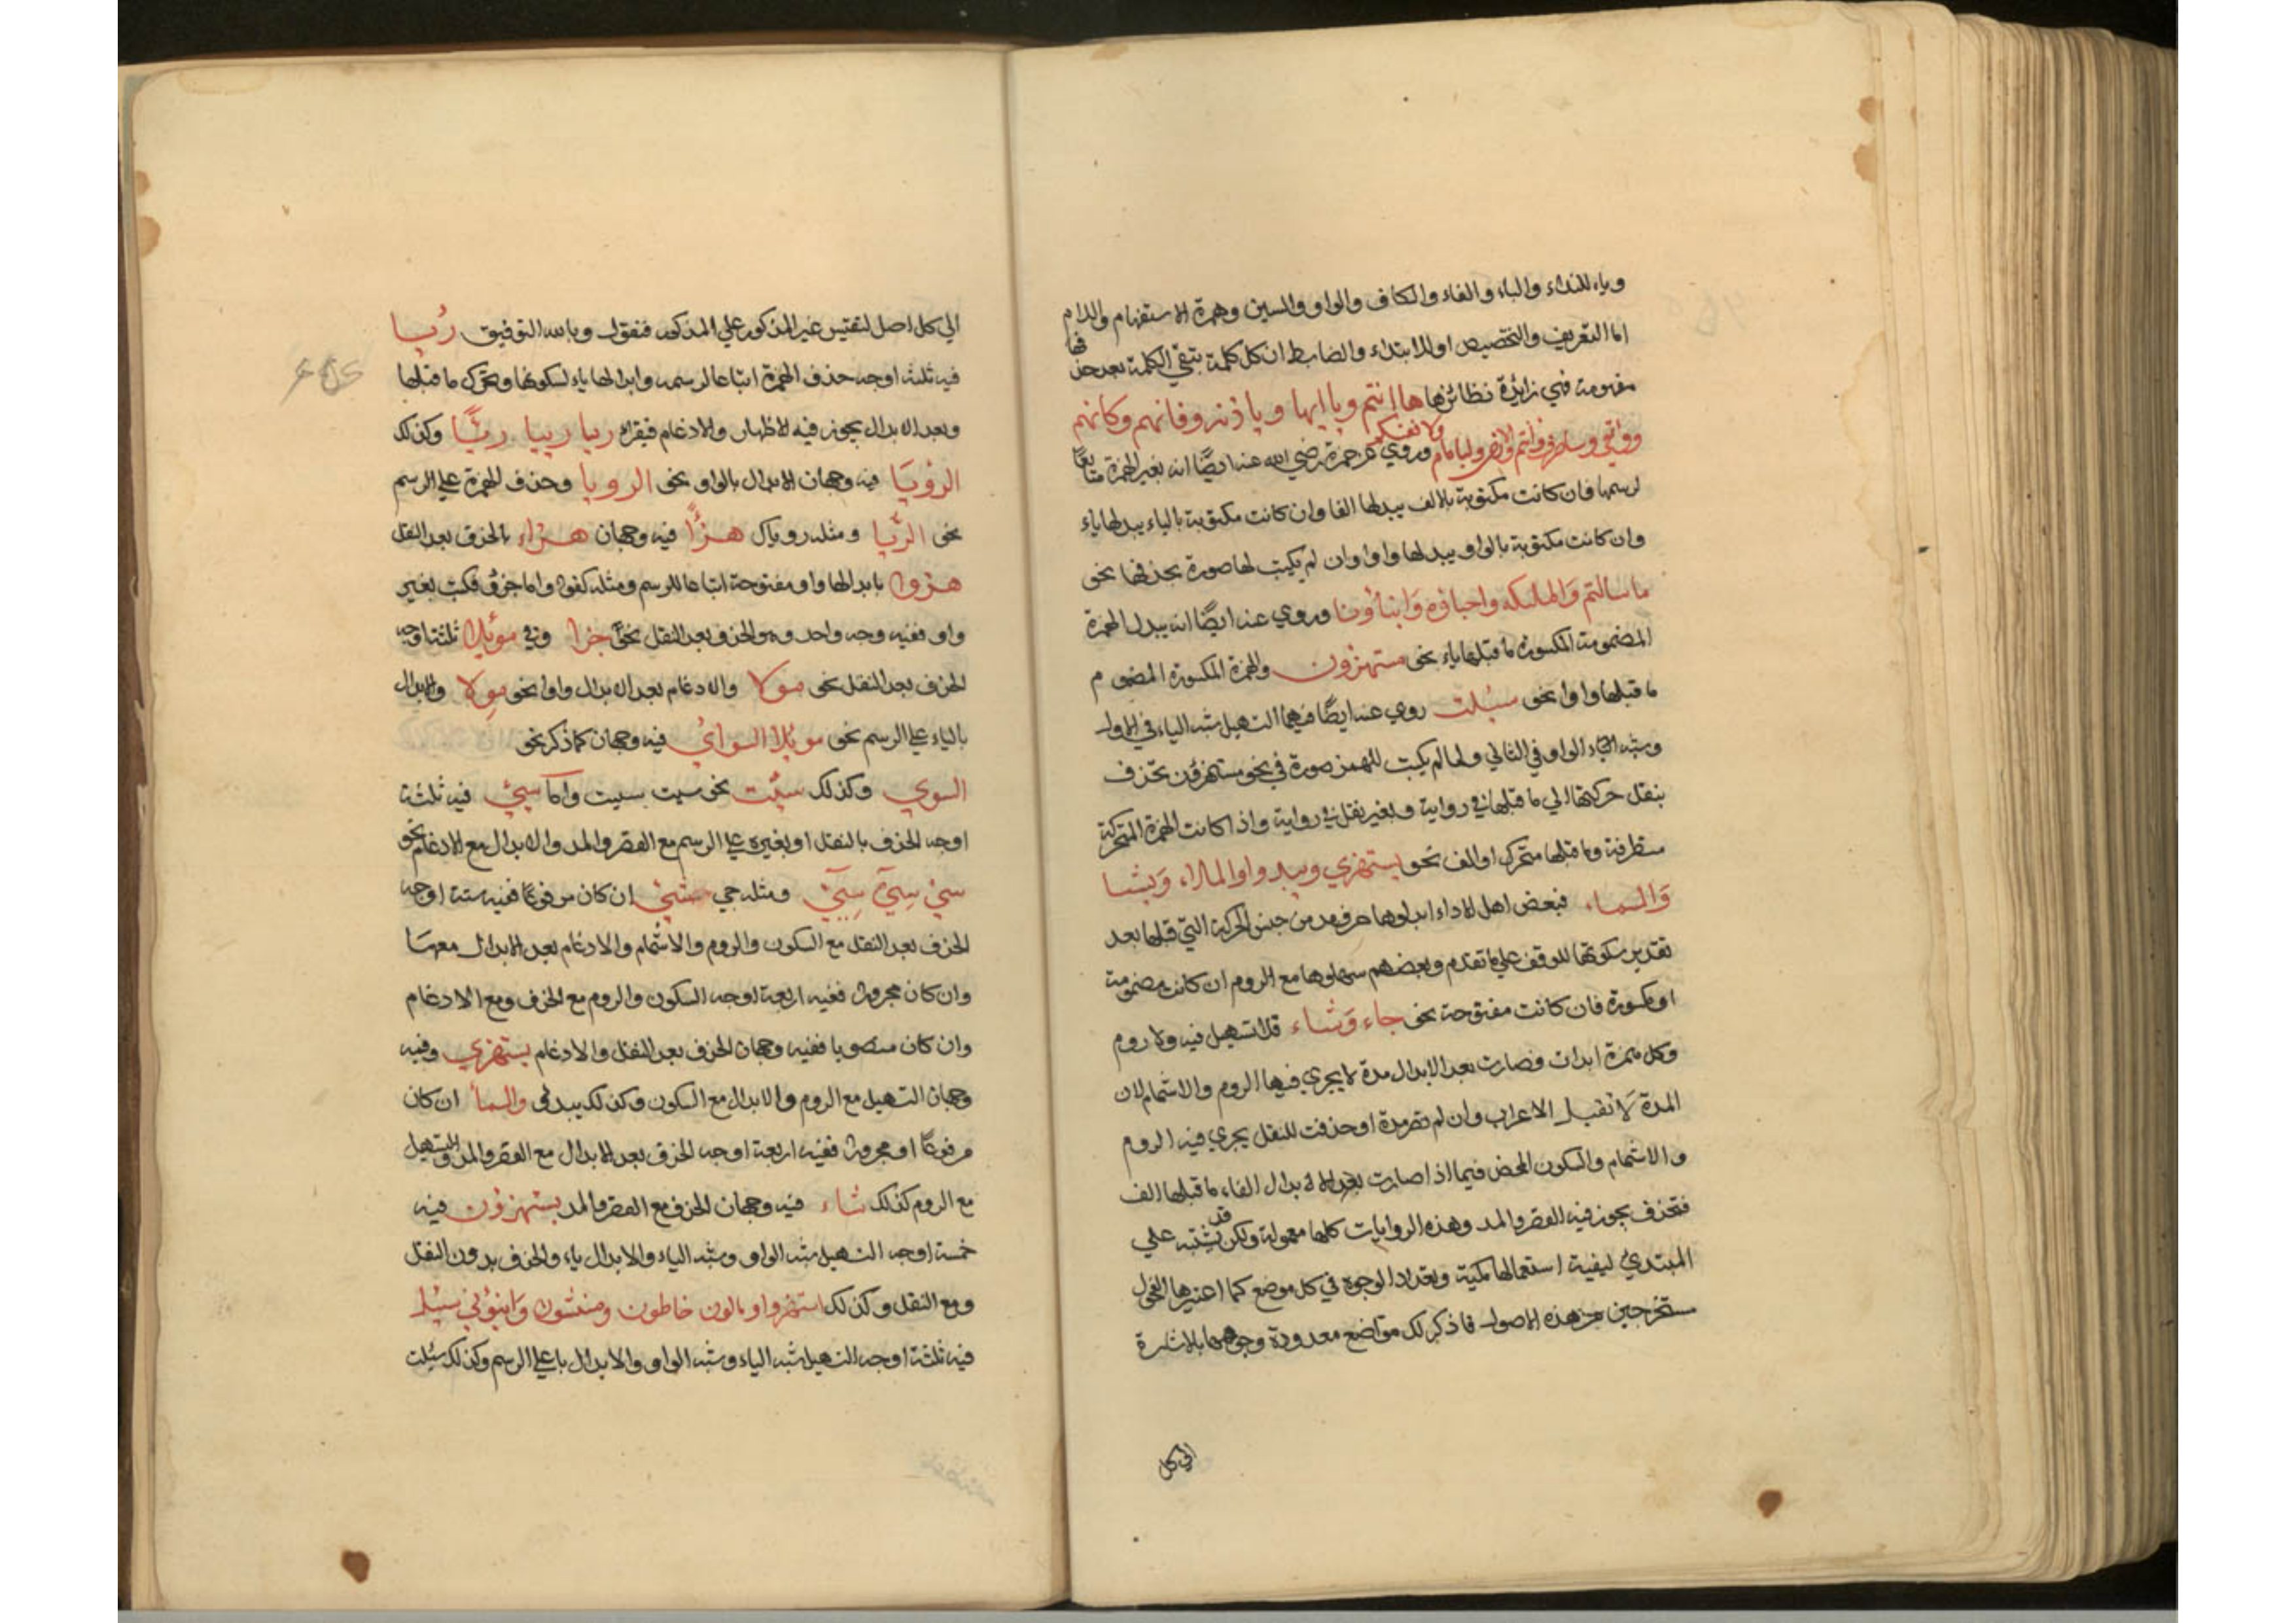 وياء للنداء والباء والفاء والكاف والواو والسين وهمزة الاستفهام واللام
اما التعريف والتخصيص او للابتداء والضابط ان كل كلمة بتقي الكلمة بعد حذفها
مفهومة فهي زايدة نظائرها هاانتم وياايها وياذنه وفانهم وكانهم
وروي عن حمزة رضي الله عنه ايضًا انه يغير الهمزة متابعًا
لرسمها فان كانت مكتوبة بالالف يبدلها الفا وان كانت مكتوبة بالياء يبدلها ياء
وان كانت مكتوبة بالواو يبدلها واوا وان لم يكتب لها صورة يحذفها نحو
ما سالتم والملئكه واحباؤه وابناؤنا وروي عنه ايضًا انه يبدل الهمزة
المضمومة المكسورة ما قبلها ياء نحو مستهزون والهمزة المكسورة المضموم
ما قبلها واوا نحو سئلت روي عنه ايضًا فيهما التسهيل شبه الياء في الاول
وشبه الواو في الثاني ولما لم يكتب للهمز صورة في نحو مستهزؤن تحذف
بنقل حركتها الي ما قبلها في رواية وبغير نقل في رواية واذا كانت الهمزة المتحركة
متطرفة وما قبلها متحرك او الف نحو يستهزي ويبدوا والملا، ويشا
والسماء فبعض اهل الاداء ابدلوها حرف مد من جنس الحركة التي قبلها بعد
تقدير سكونها للوقف علي ما تقدم وبعضهم سهلوها مع الروم ان كانت مضمومة
او مكسورة فان كانت مفتوحة نحو جاء وشاء فلا تسهيل فيه ولا روم
وكل همزة ابدلت فصارت بعد الابدال مدة لا يجري فيها الروم والاشمام لان
المدة لا تقبل الاعراب وان لم تصر مدة او حذفت للنقل يجري فيه الروم
والاشمام والسكون المحض فيما اذا صارت بعد الابدال الفاء ما قبلها الف
فتحذف يجوز فيه القصر والمد وهذه الروايات كلها معمولة ولكن قد يشتبه علي
المبتدئ ليفية استعمالها مكية وتعداد الوجوه في كل موضع كما اعتبرها الفحول
مستخرجين من هذه الاصول فاذكر لك مواضع معدودة وجوهها بالاشارة
الي كل
الي كل اصل لتقتيس غير المذكور علي المذكور فنقول وبالله التوفيق رئيا
فيه ثلثة اوجه حذف الهمزة اتباعا لرسمه وابدالها ياء لسكونها وتحرك ما قبلها
وبعد الابدال يجوز فيه الاظهار والادغام فيقراء ريا رييا ريًّا وكذلك
الرؤيا فيه وجهان الابدال بالواو نحو الرويا وحذف الهمزة علي الرسم
نحو الريا ومثله روياك هزؤًا فيه وجهان هزاء بالحذف بعد النقل
هزوا بابدالها واو مفتوحة اتباعا للرسم ومثله كفوا واما جزؤ فكتب بغير
واو ففيه وجه واحد وهو الحذف بعد النقل نحو جزا وفي موئلا ثلثة اوجه
الحذف بعد النقل نحو مولا والادغام بعد الابدال واوا نحو مولا والابدال
بالياء علي الرسم نحو مويلا السوائ فيه وجهان كما ذكر نحو
السوي وكذلك سيئت نحو سيت سييت واما سيئ فيه ثلثة
اوجه الحذف بالنقل او بغيره علي الرسم مع القصر والمد والابدال مع الادغام نحو
سئ سي سي ومثله جي شئ ان كان مرفوعًا ففيه ستة اوجه
الحذف بعد النقل مع السكون والروم والاشمام والادغام بعد الابدال معها
وان كان مجرورا ففيه اربعة اوجه السكون والروم مع الحذف ومع الادغام
وان كان منصوبا ففيه وجهان الحذف بعد النقل والادغام يستهزي وفيه
وجهان التسهيل مع الروم والابدال مع السكون وكذلك يبدئ والسما ان كان
مرفوعًا او مجرورا ففيه اربعة اوجه الحذف بعد الابدال مع القصر والمد والتسهيل
مع الروم كذلك شاء فيه وجهان الحذف مع القصر والمد يستهزؤن فيه
خمسة اوجه التسهيل شبه الواو وشبه الياء والابدال ياء والحذف بدون النقل
ومع النقل وكذلك استهزوا ومالون خاطون ومنشون وانبؤني سئلا
فيه ثلثة اوجه التسهيل شبه الياء وشبه الواو والابدال يا علي الرسم وكذلك سئلت